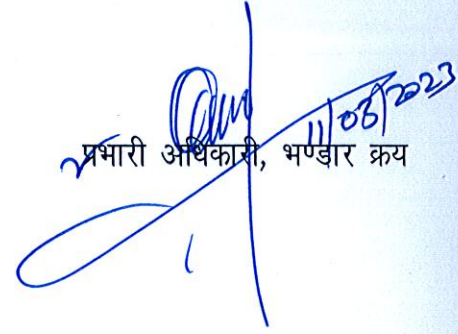 11/08/2023
प्रभारी अधिकारी, भण्डार क्रय